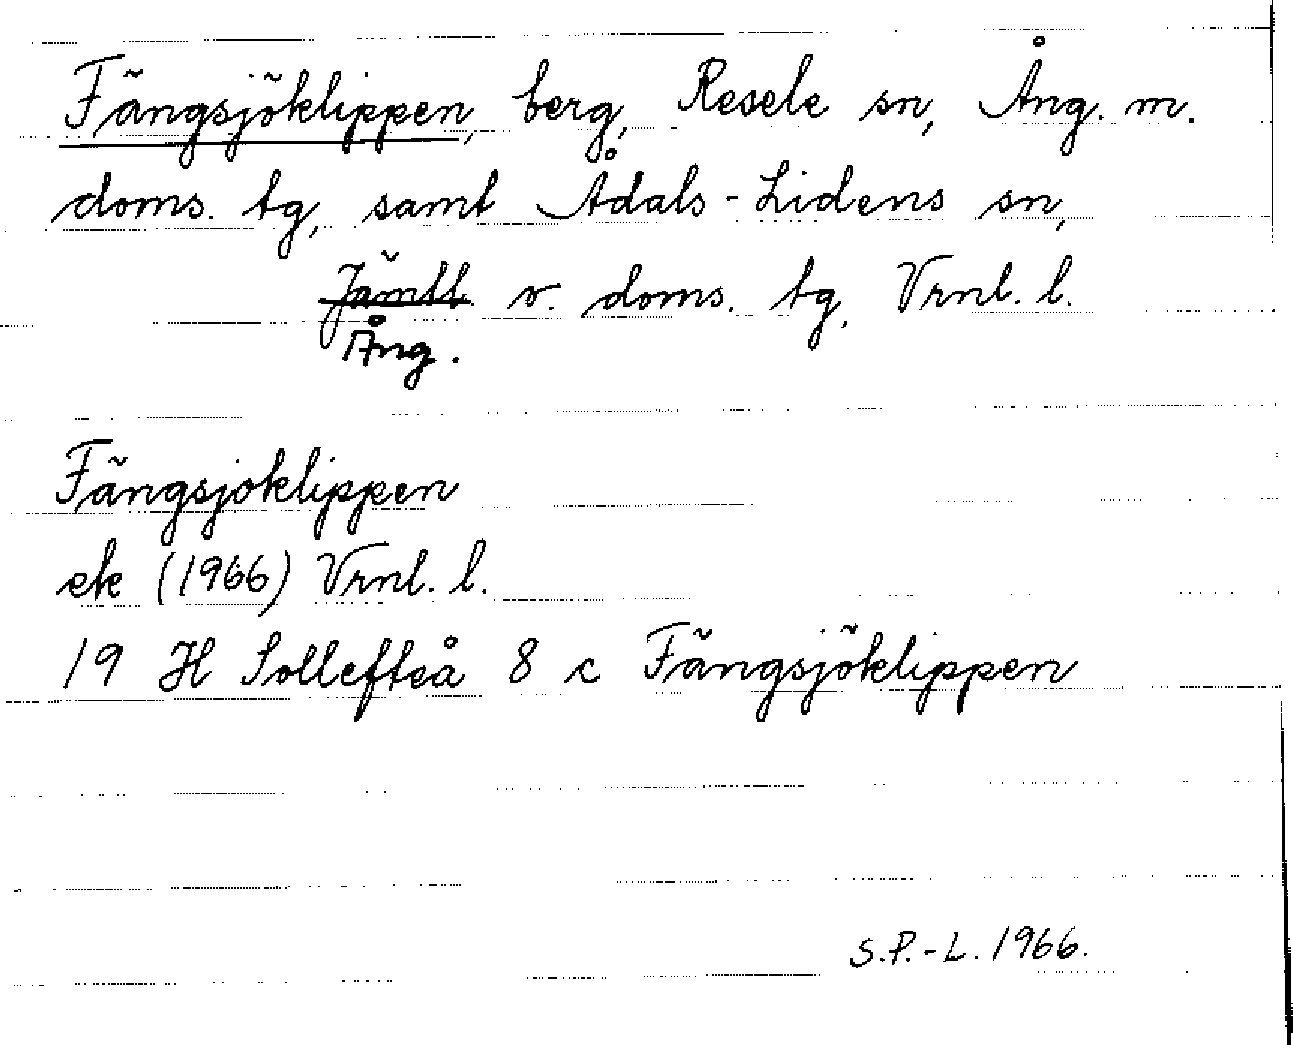 Fängsjöklippen, berg, Resele sn, Ång. m.
doms. tg, samt Ådals-Lidens sn,
Jämtl. v. doms. tg, Vrnl. l.
Ång.
Fängsjoklippen
ek (1966) Vrnl. l.
19 H Sollefteå 8 c Fängsjöklippen
S.P.-L. 1966.